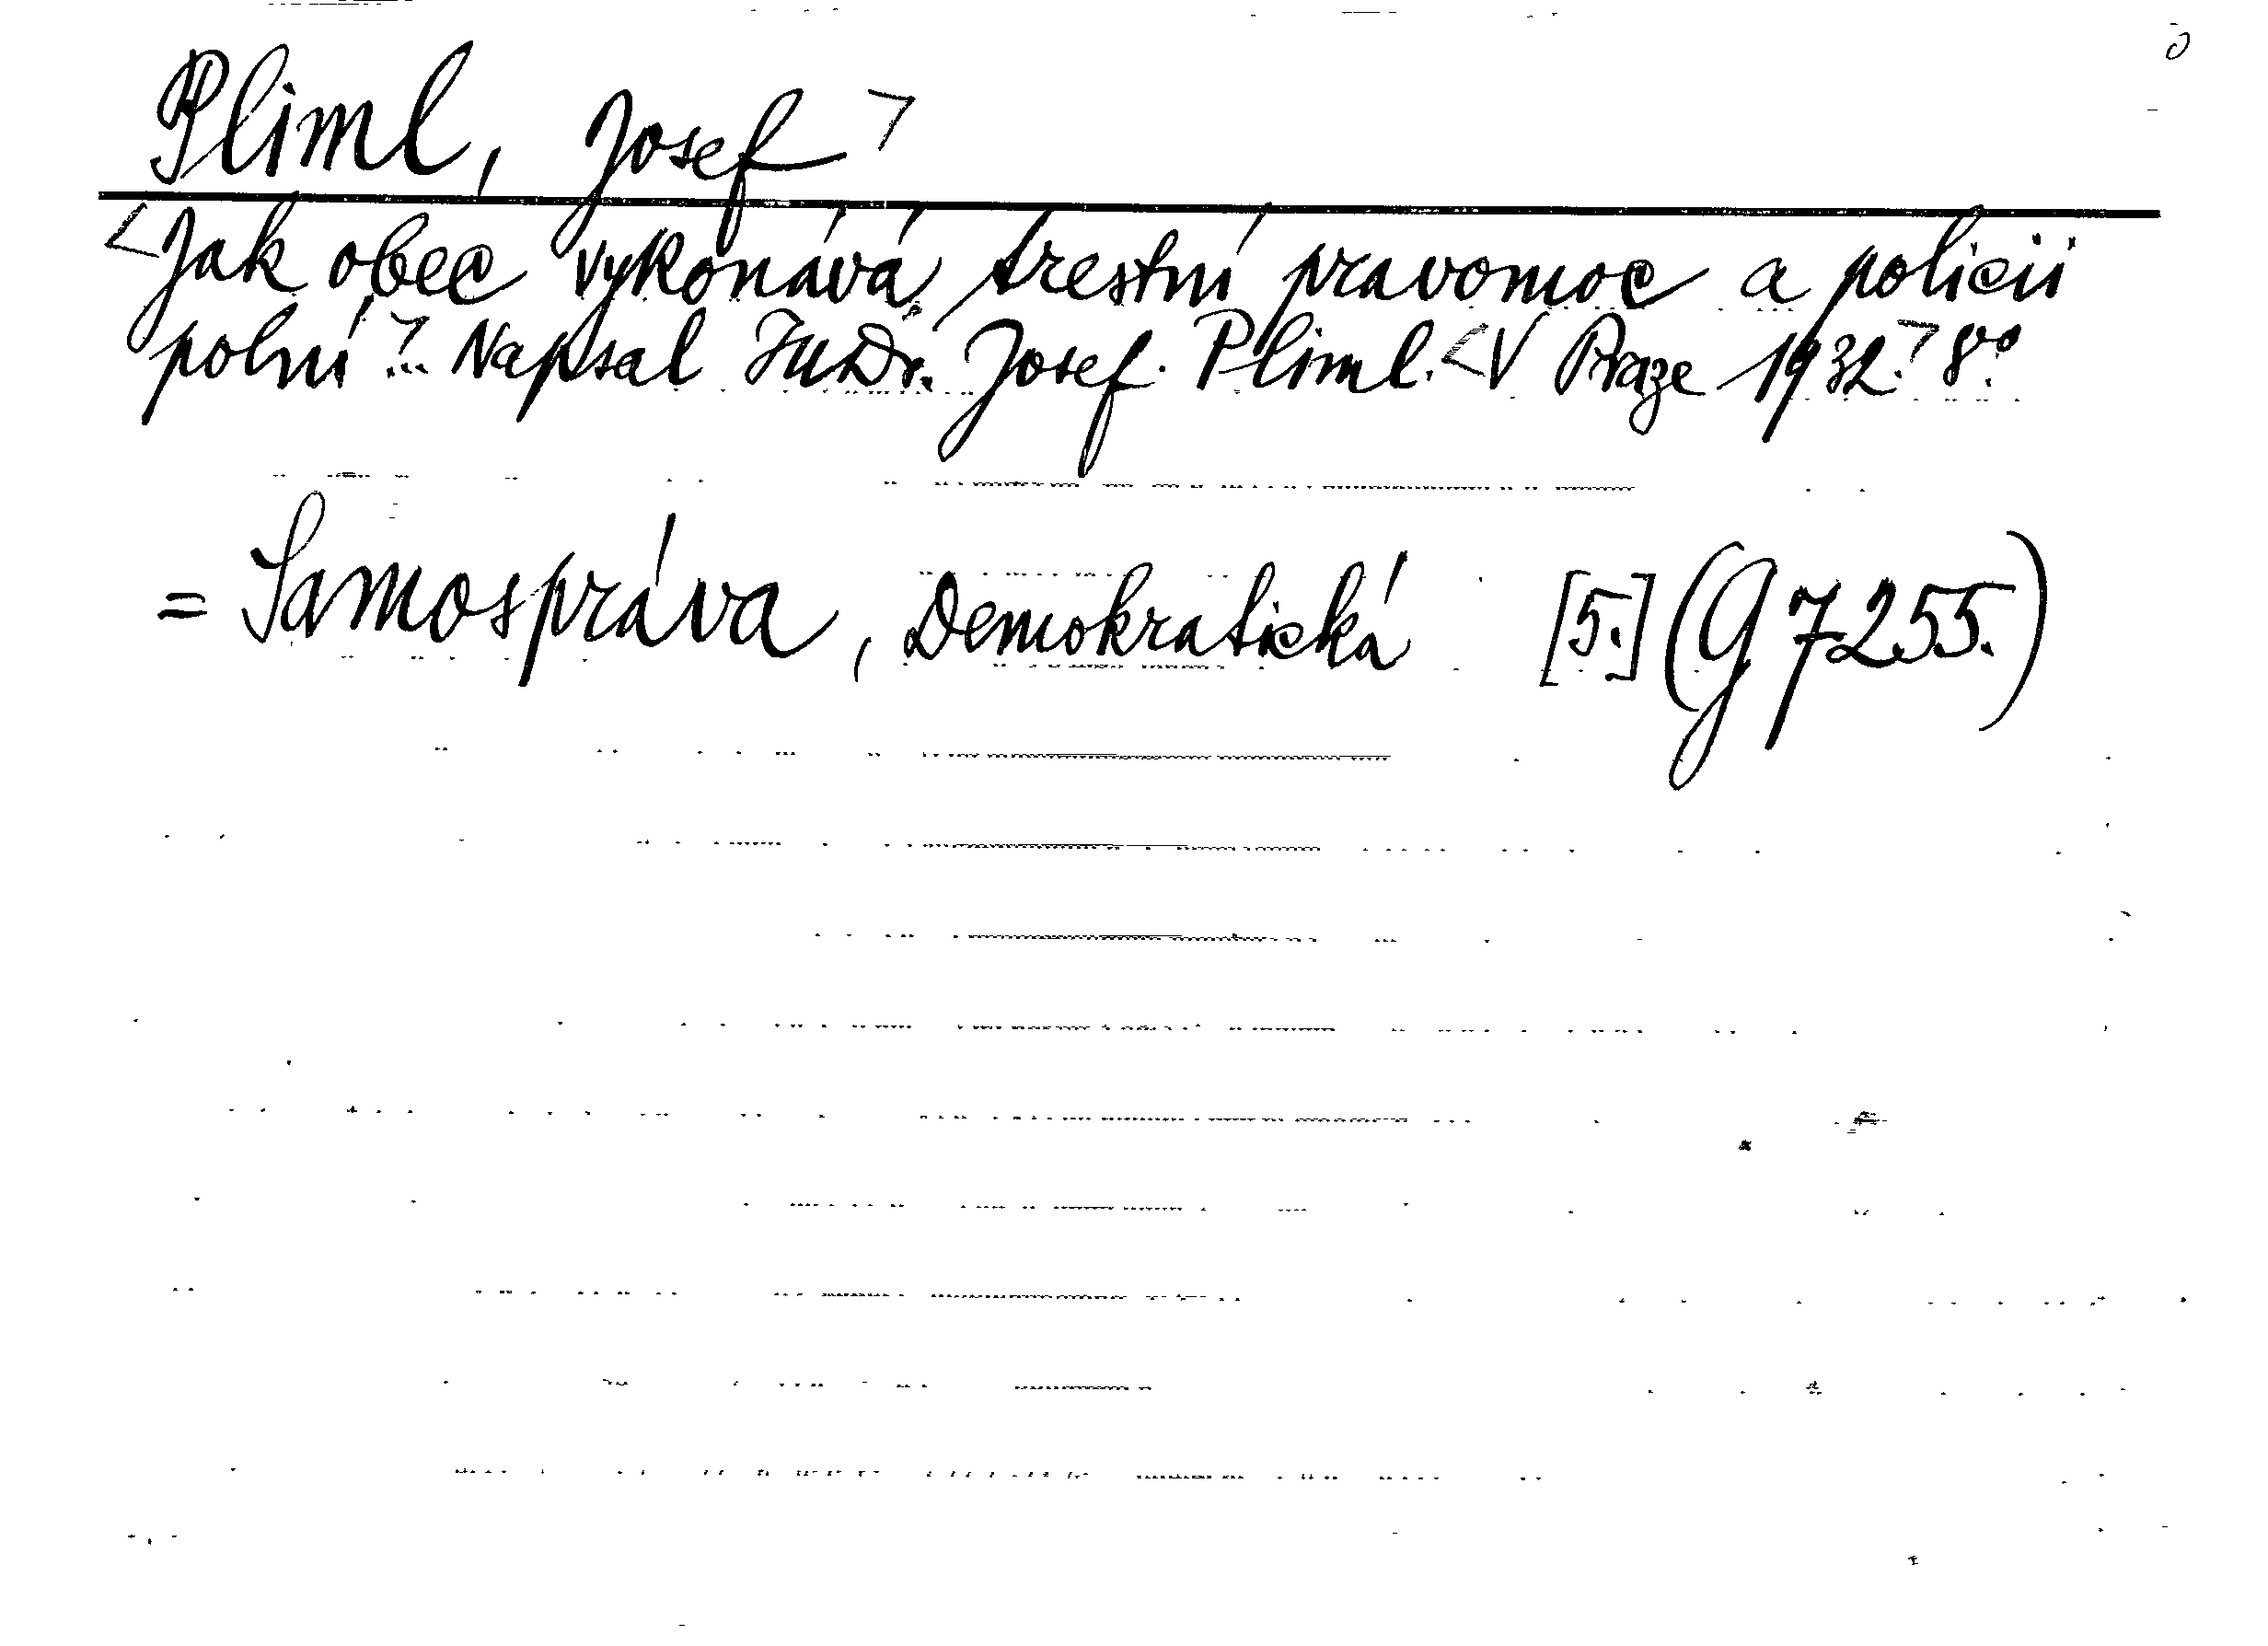 Pliml, Josef
Jak obec vykonává trestní pravomoc a policii
polní?.. Napsal JUDr. Josef Pliml. V Praze 1932. 8º.
= Samospráva, Demokratická [5.] (G 7255.)